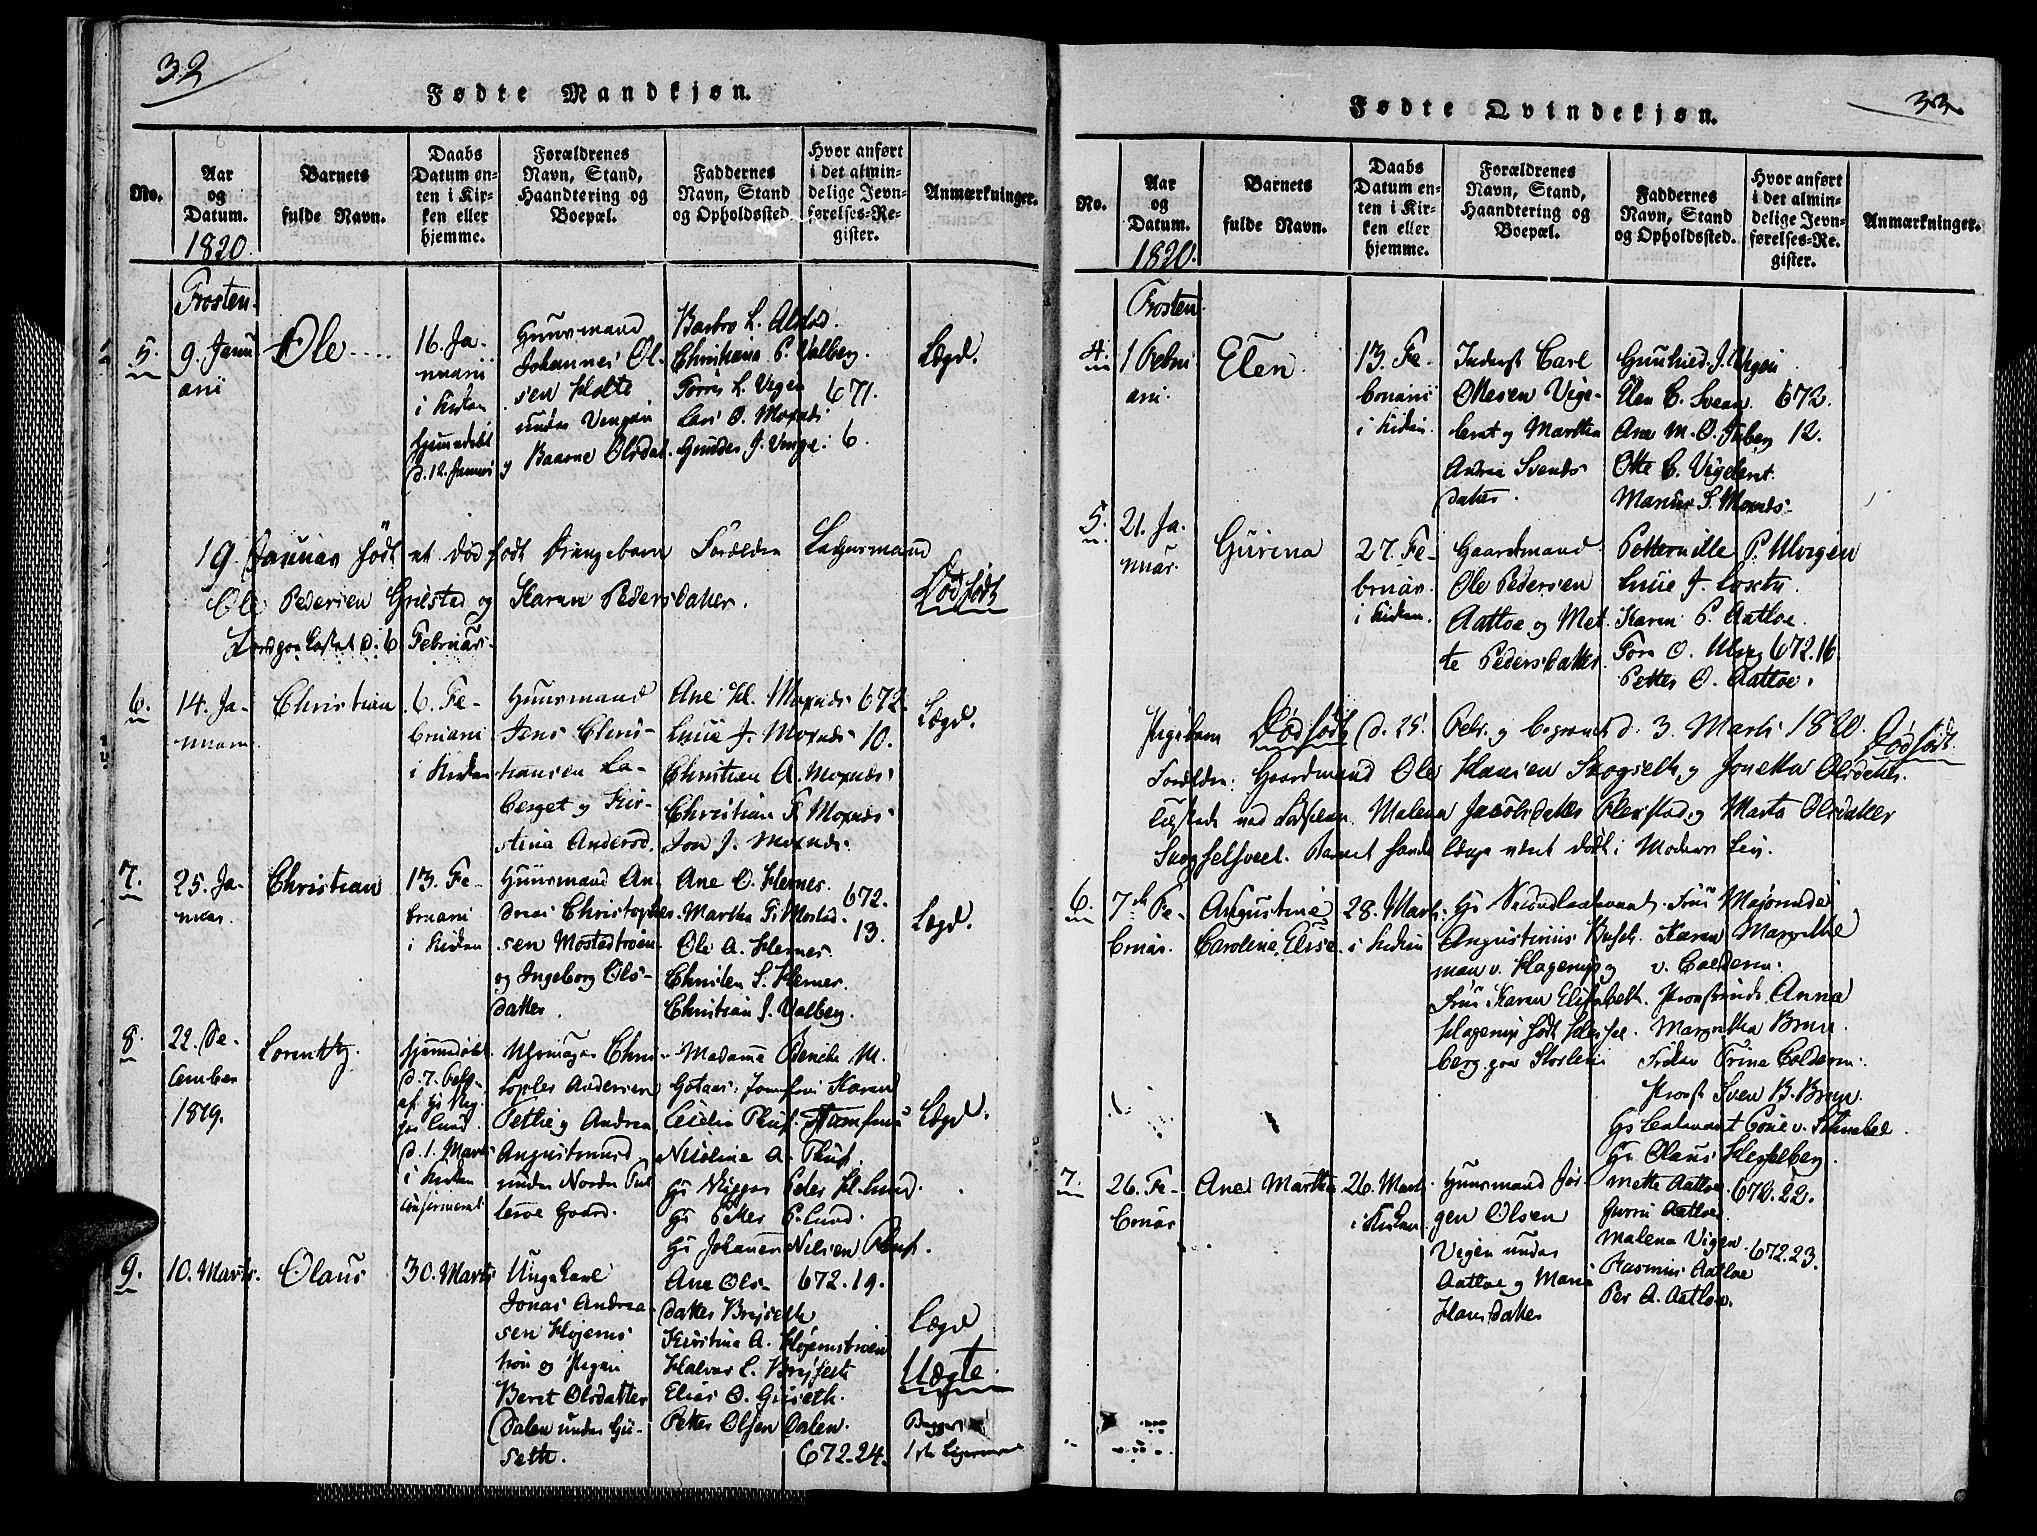 32
Fødte Mandkjøn.
No.
Aar
og
Datum.
1820.
Barnets
fulde Navn.
Daabs
Datum en-
ten i Kir-
ken eller
hjemme.
Forældrenes
Navn, Stand,
Haandtering og
Boepæl.
Faddernes
Navn, Stand
og Opholdssted.
Hvor anført
i det almin-
delige Jevn-
førelses-Re-
gister.
Anmærkninger.
Frosten.
5.
9. Janu
arii
Ole
16. Ja-
nuarii
i Kirken
hjemmedøbt
d. 12. Januari
Huusmand
Johannes Ol-
sen Holte
under
y Baarne Olsdat.
Barbro L. Alstad.
Christiana P. Valberg.
Torris L. Vigen
Lars O. Moxnæs
Gunder J. Venge.
671.
6.
Lægd.
19. Januar født et dødfødt Drengebarn Forældre
Ole Pedersen Grilstad og Karen Pedersdatter.
d. 6 Februar.
Dødfødt
6.
14. Ja-
nuarii
Christian
6. Fe-
bruarii
i Kirken
Huusmand
Jens Chris-
tiansen La-
berget y Kir-
stina Andersd.
Ane H. Moxnæs
Lucie J. Moxnæs
Christian A. Moxnæs
Christian P. Moxnæs
Jon J. Moxnæs.
672.
10.
Lægd.
7.
25. Ja-
nuar.
Christian
13. Fe-
bruarii
i Kirken
Huusmand An-
dreas Christophers-
sen Mostadtrøen
og Ingeborg Ols-
datter.
Ane O. Hernes.
Martha P. Mostad.
Ole A. Hernes.
Christen S. Hernes.
Christian J. Valberg.
672.
13.
Lægd.
8.
22. De-
cember
1819.
Lorentz.
hjemmedøbt
d. 7.
af Hr
Lund.
d. 1. Marts
i Kirken
confirmeret
Chri-
stopher Andersen
Petli y Andrea
Augustinusd.
under Nordre
Gaard.
Madame Benche M.
Gotaas. Jomfru Karen
Cicilia Thus. Jomfrue
Nicoline A. Thus.
Hr Skipper Peder H. Lund.
Hr Petter P. Lund.
Hr Johannes Nilsen Thus.
Lægd.
9.
10. Marts.
Olaus
30. Marts
Ungekarl
Jonas Andrea-
sen Højems-
trøn og Pigen
Beret Olsdatter
Dalen under Gu-
seth.
Ane Ols-
datter Brejseth
Kirstina A. Højemstrøen
Halvor L. Brejseth
Elias O. Guseth.
Petter Olsen Dalen.
672. 19.
672. 24.
Lægd
Uægte.
Begges
1ste Leiermaal

Fødte Qvindekjøn.
33
No.
Aar
og
Datum.
1820.
Barnets
fulde Navn.
Daabs
Datum en-
ten i Kir-
ken eller
hjemme.
Forældrenes
Navn, Stand,
Haandtering og
Boepæl.
Faddernes
Navn, Stand
og Opholdssted.
Hvor anført
i det almin-
delige Jevn-
førelses-Re-
gister.
Anmærkninger.
Frosten.
4.
1 Febru
arii.
Elen
13. Fe-
bruarii
i Kirken.
Inderst Carl
Ottesen Vige-
lerat y Martha
Andrea Svends
datter.
Gunhild J. Ulvgen
Elen C. Svean.
Ane M. O.
Otte C. Vigelerat.
Marcus S. Moxnæs.
672.
12.
5.
21. Ja-
nuar.
Gurina
27. Fe-
bruar.
i Kirken.
Gaardmand
Ole Pedersen
Aattoe og Met-
te Pedersdatter.
Petternille P. Ulvgen
Lucie J. Loxtu.
Karen P. Aattoe.
Tore O.
Petter O. Aattoe.
672. 16.
Pigebarn Dødfødt d. 25. Febr. y begravet d. 3. Marti 1820.
Forældre: Gaardmand Ole Hansen Skogseth y Jonetta Olsdatter.
Tilstede ved Fødselen Malena Jacobsdatter Flenstad y Marta Olsdatter
Skogselsveet. Barnet havde længe været dødt i Moders Liv.
Dødfødt.
6.
7de Fe-
bruar.
Augustina
Carolina Elise
28. Marts.
i Kirken
Hr Secondlieutenant
Augustinus Busch-
man v. Hagerup y
Frue Karen Elisabeth
Hagerup født Hessel-
berg
Frue Majorinde
Karen Margrethe
v. Coldevin.
Provstinde Anna
Margretha Bruun.
Frøken Trine Coldevin.
Provst Sven B. Bruun.
Hr Lieutenant Cone v. Schnabel.
Hr Olaus Hesselberg.
7.
26. Fe-
bruar
Ane Martha
26. Marts.
i Kirken
Huusmand Jør-
gen Olsen
Vigen under
Aattoe y Maria
Hansdatter
Mette Aattoe
Gurru Aattoe
Malena Vigen.
Rasmus Aattoe
Per A. Aattoe.
672. 22.
672. 23.